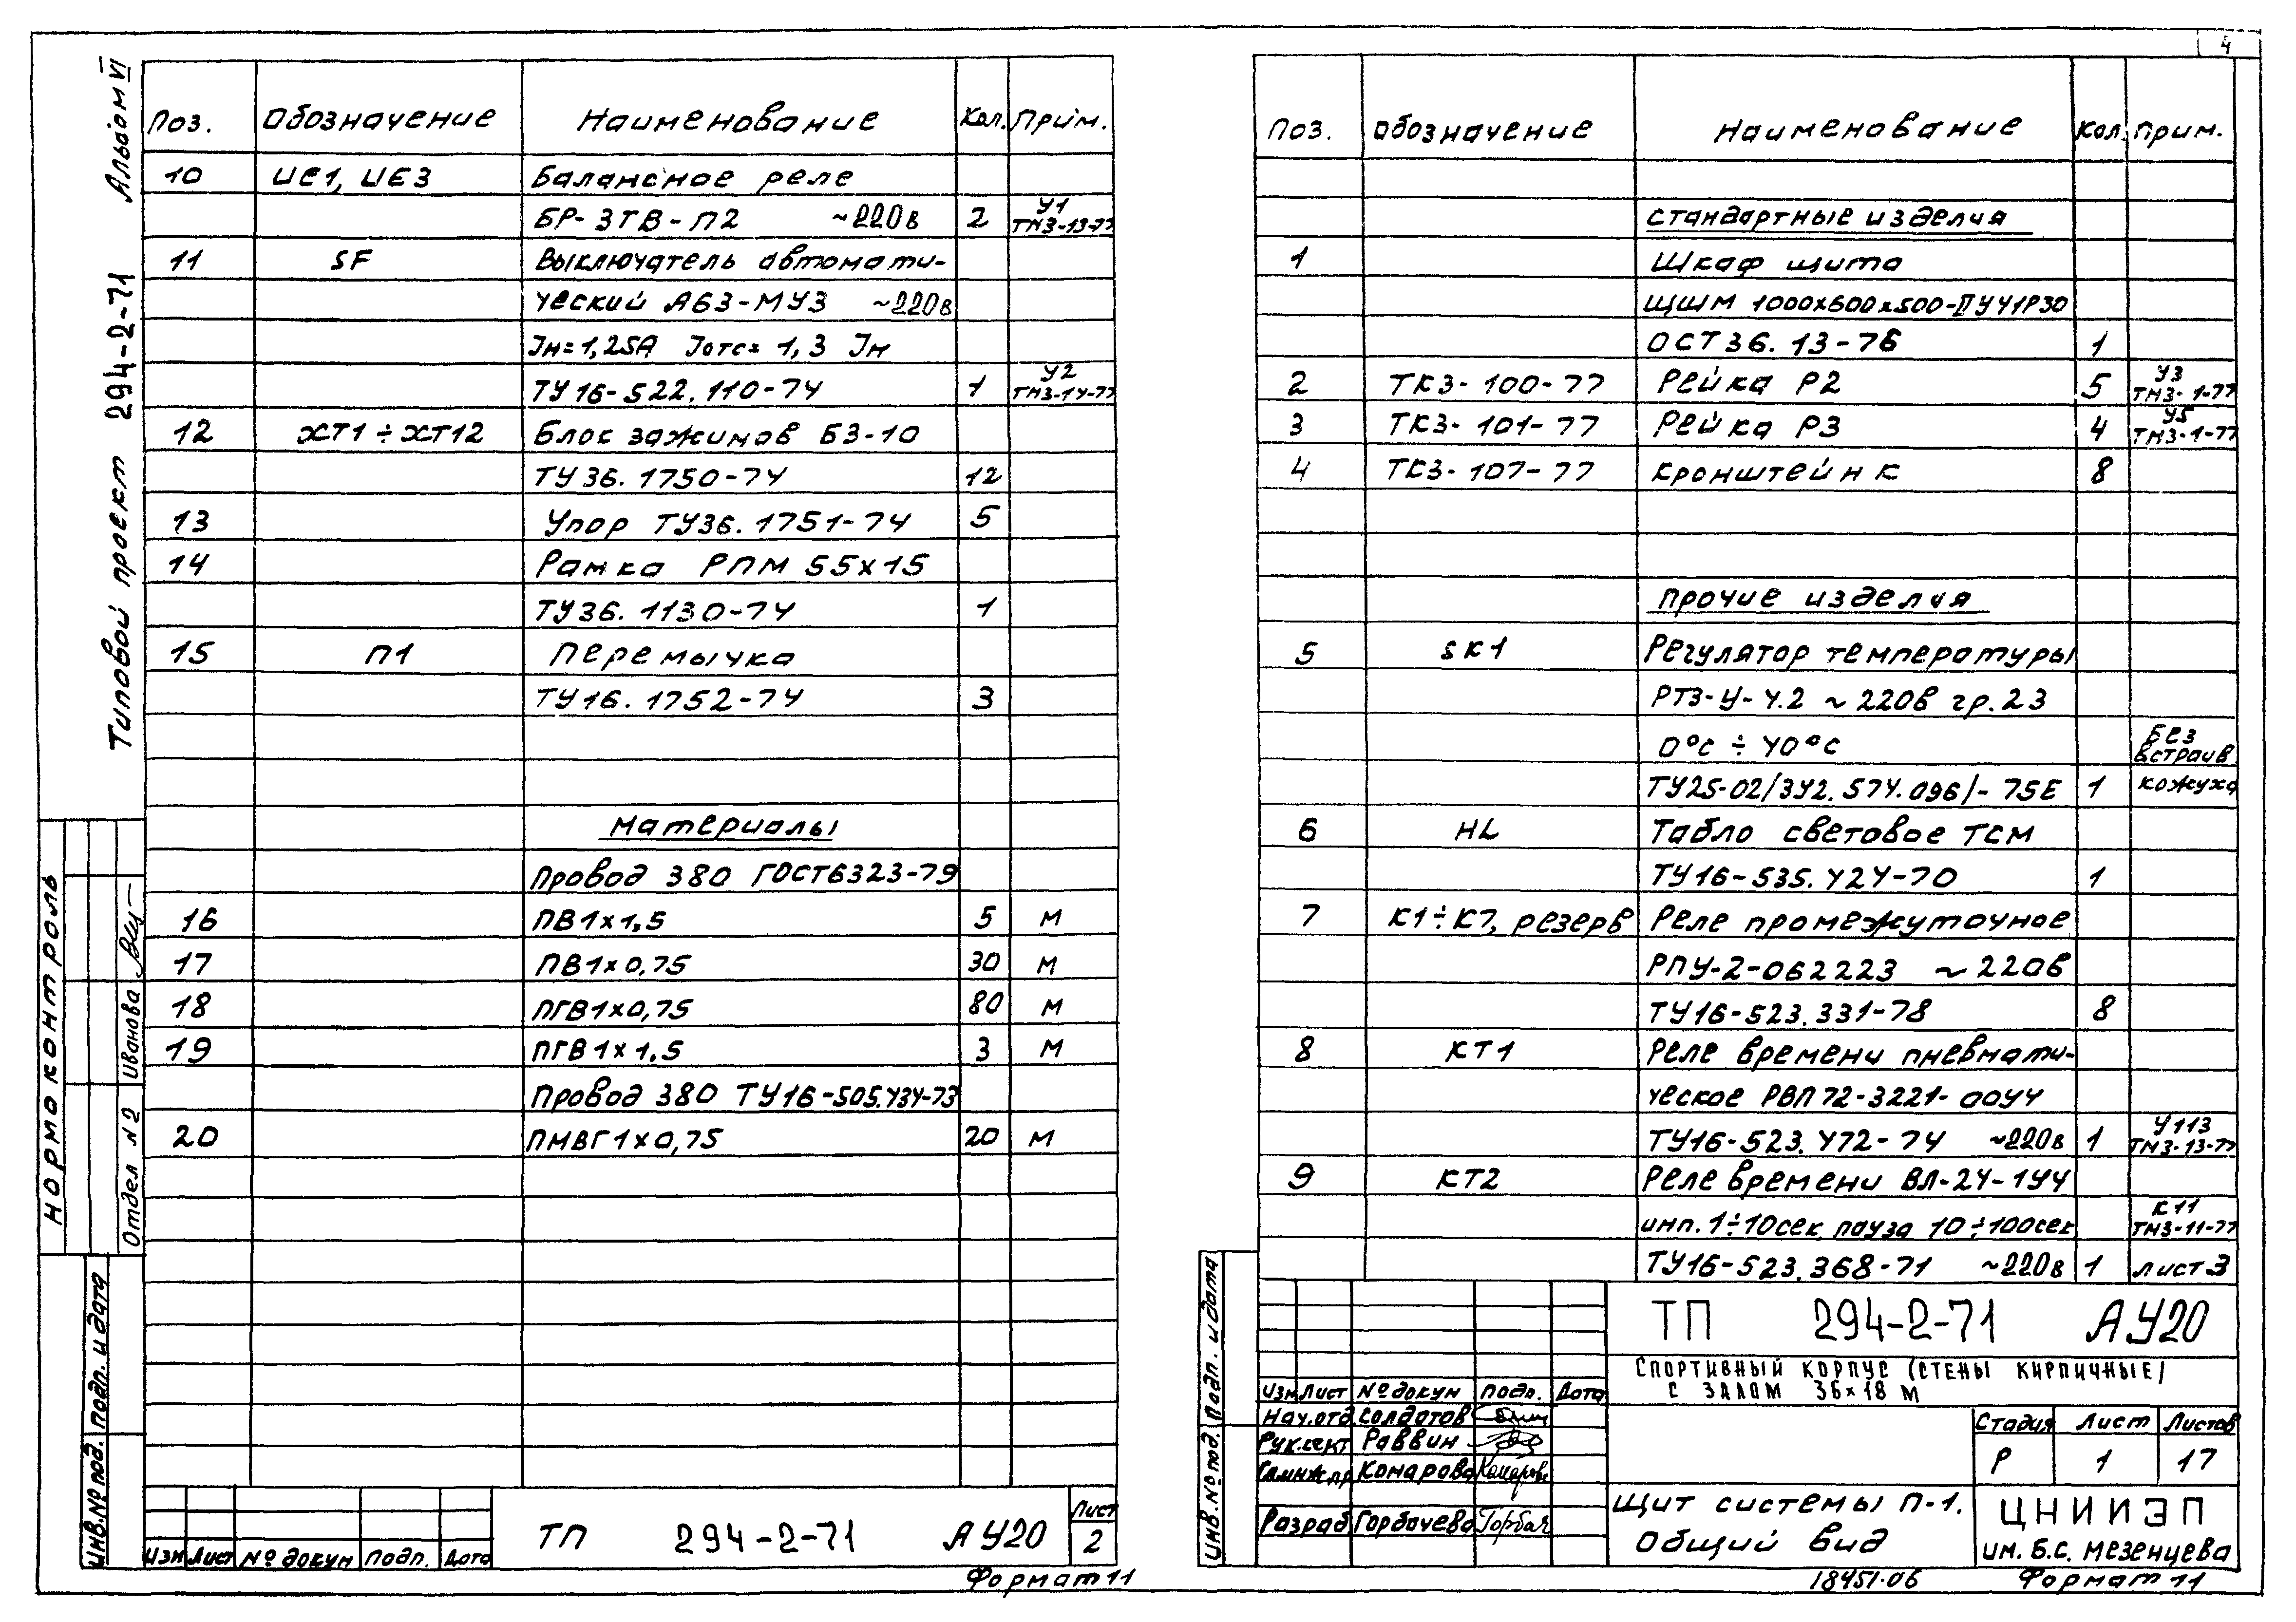 4
Альбом VI
Типовой проект 294-2-71
Нормоконтроль
Отдел N2 Иванова
Инв.№под. Подп. и дата
Поз. Обозначение Наименование Кол. Прим.
10 UE1, UE3 Балансное реле
БР-3ТВ-П2 ~220в 2 У1 ТМ3-13-77
11 SF Выключатель автомати-
ческий А63-МУ3 ~220в
Iн=1,25А Iотс= 1,3 Iн
ТУ16-522.110-74 1 У2 ТМ3-14-77
12 ХТ1÷ХТ12 Блок зажимов БЗ-10
ТУ36.1750-74 12
13 Упор ТУ36.1751-74 5
14 Рамка РПМ 55х15
ТУ36.1130-74 1
15 П1 Перемычка
ТУ16.1752-74 3
Материалы
Провод 380 ГОСТ6323-79
16 ПВ1х1,5 5 м
17 ПВ1х0,75 30 м
18 ПГВ1х0,75 80 м
19 ПГВ1х1.5 3 м
Провод 380 ТУ16-505.434-73
20 ПМВГ1х0,75 20 м
Изм Лист № докум Подп. Дата
ТП 294-2-71 АУ20
Лист
2
Формат 11
Поз. Обозначение Наименование Кол. Прим.
Стандартные изделия
1 Шкаф щита
ЩШМ 1000х600х500-ПУЧ1Р30
ОСТ36.13-76 1
2 ТК3-100-77 Рейка Р2 5 У3 ТМ3-1-77
3 ТК3-101-77 Рейка Р3 4 У5 ТМ3-1-77
4 ТК3-107-77 Кронштейн К 8
Прочие изделия
5 SK1 Регулятор температуры
РТ3-У-4.2 ~220в гр.23
0°С ÷ 40°С Без встраив
ТУ25-02/342.574.096/-75Е 1 кожуха
6 HL Табло световое ТСМ
ТУ16-535.424-70 1
7 К1÷К7, резерв Реле промежуточное
РПУ-2-062223 ~220в
ТУ16-523.331-78 8
8 КТ1 Реле времени пневмати-
ческое РВП72-3221-00У4
ТУ16-523.472-74 ~220в 1 У113 ТМ3-13-77
9 КТ2 Реле времени ВЛ-24-1У4
имп.1÷10сек пауза 10÷100сек К11 ТМ3-11-77
ТУ16-523.368-71 ~220в 1 лист 3
Инв.№под. Подп. и дата
ТП 294-2-71 АУ20
Спортивный корпус (стены кирпичные)
с залом 36×18 м
Изм Лист № докум Подп. Дата
Нач.отд Солдатов
Рук.сект Раввин
Гл.инж.пр Комарова
Разраб Горбачева Горбач
Стадия Лист Листов
Р 1 17
Щит системы П-1.
Общий вид
ЦНИИЭП
им. Б.С. Мезенцева
18451-06 Формат 11